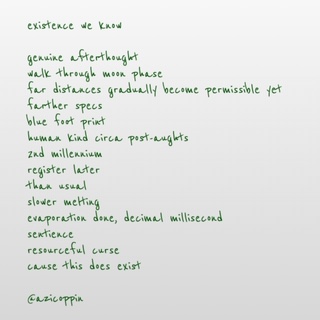 existence we know
genuine afterthought
walk through moon phase
far distances gradually become permissible yet
farther specs
blue foot print
human kind circa post-aughts
2nd millennium
register later
than usual
slower melting
evaporation done, decimal millisecond
sentience
resourceful curse
cause this does exist
@azicoppin